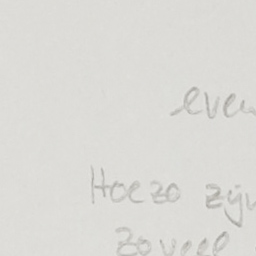 even
Hoezo zijn
zoveel